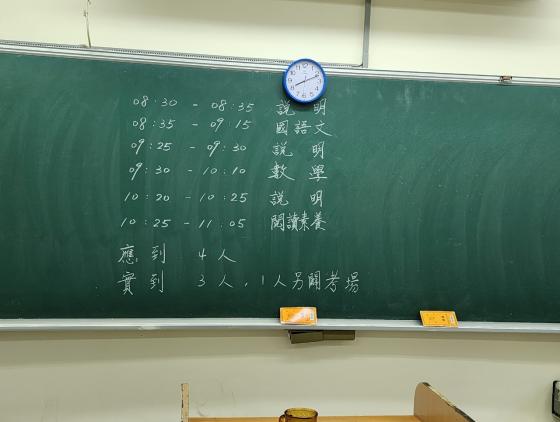 08:30 - 08:35 說 明
08:35 - 09:15 國語文
09:25 - 09:30 說 明
09:30 - 10:10 數 學
10:20 - 10:25 說 明
10:25 - 11:05 閱讀素養
應到 4人
實到 3人,1人另開考場